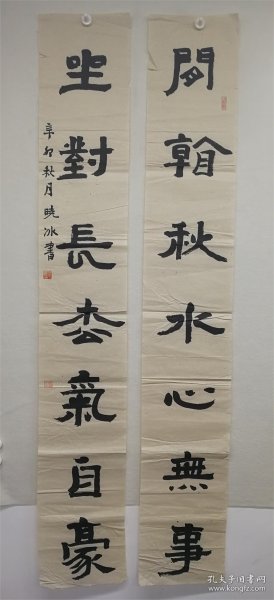 閒看秋水心無事
坐對長枩氣自豪
辛卯秋月曉冰書
孔夫子旧书网